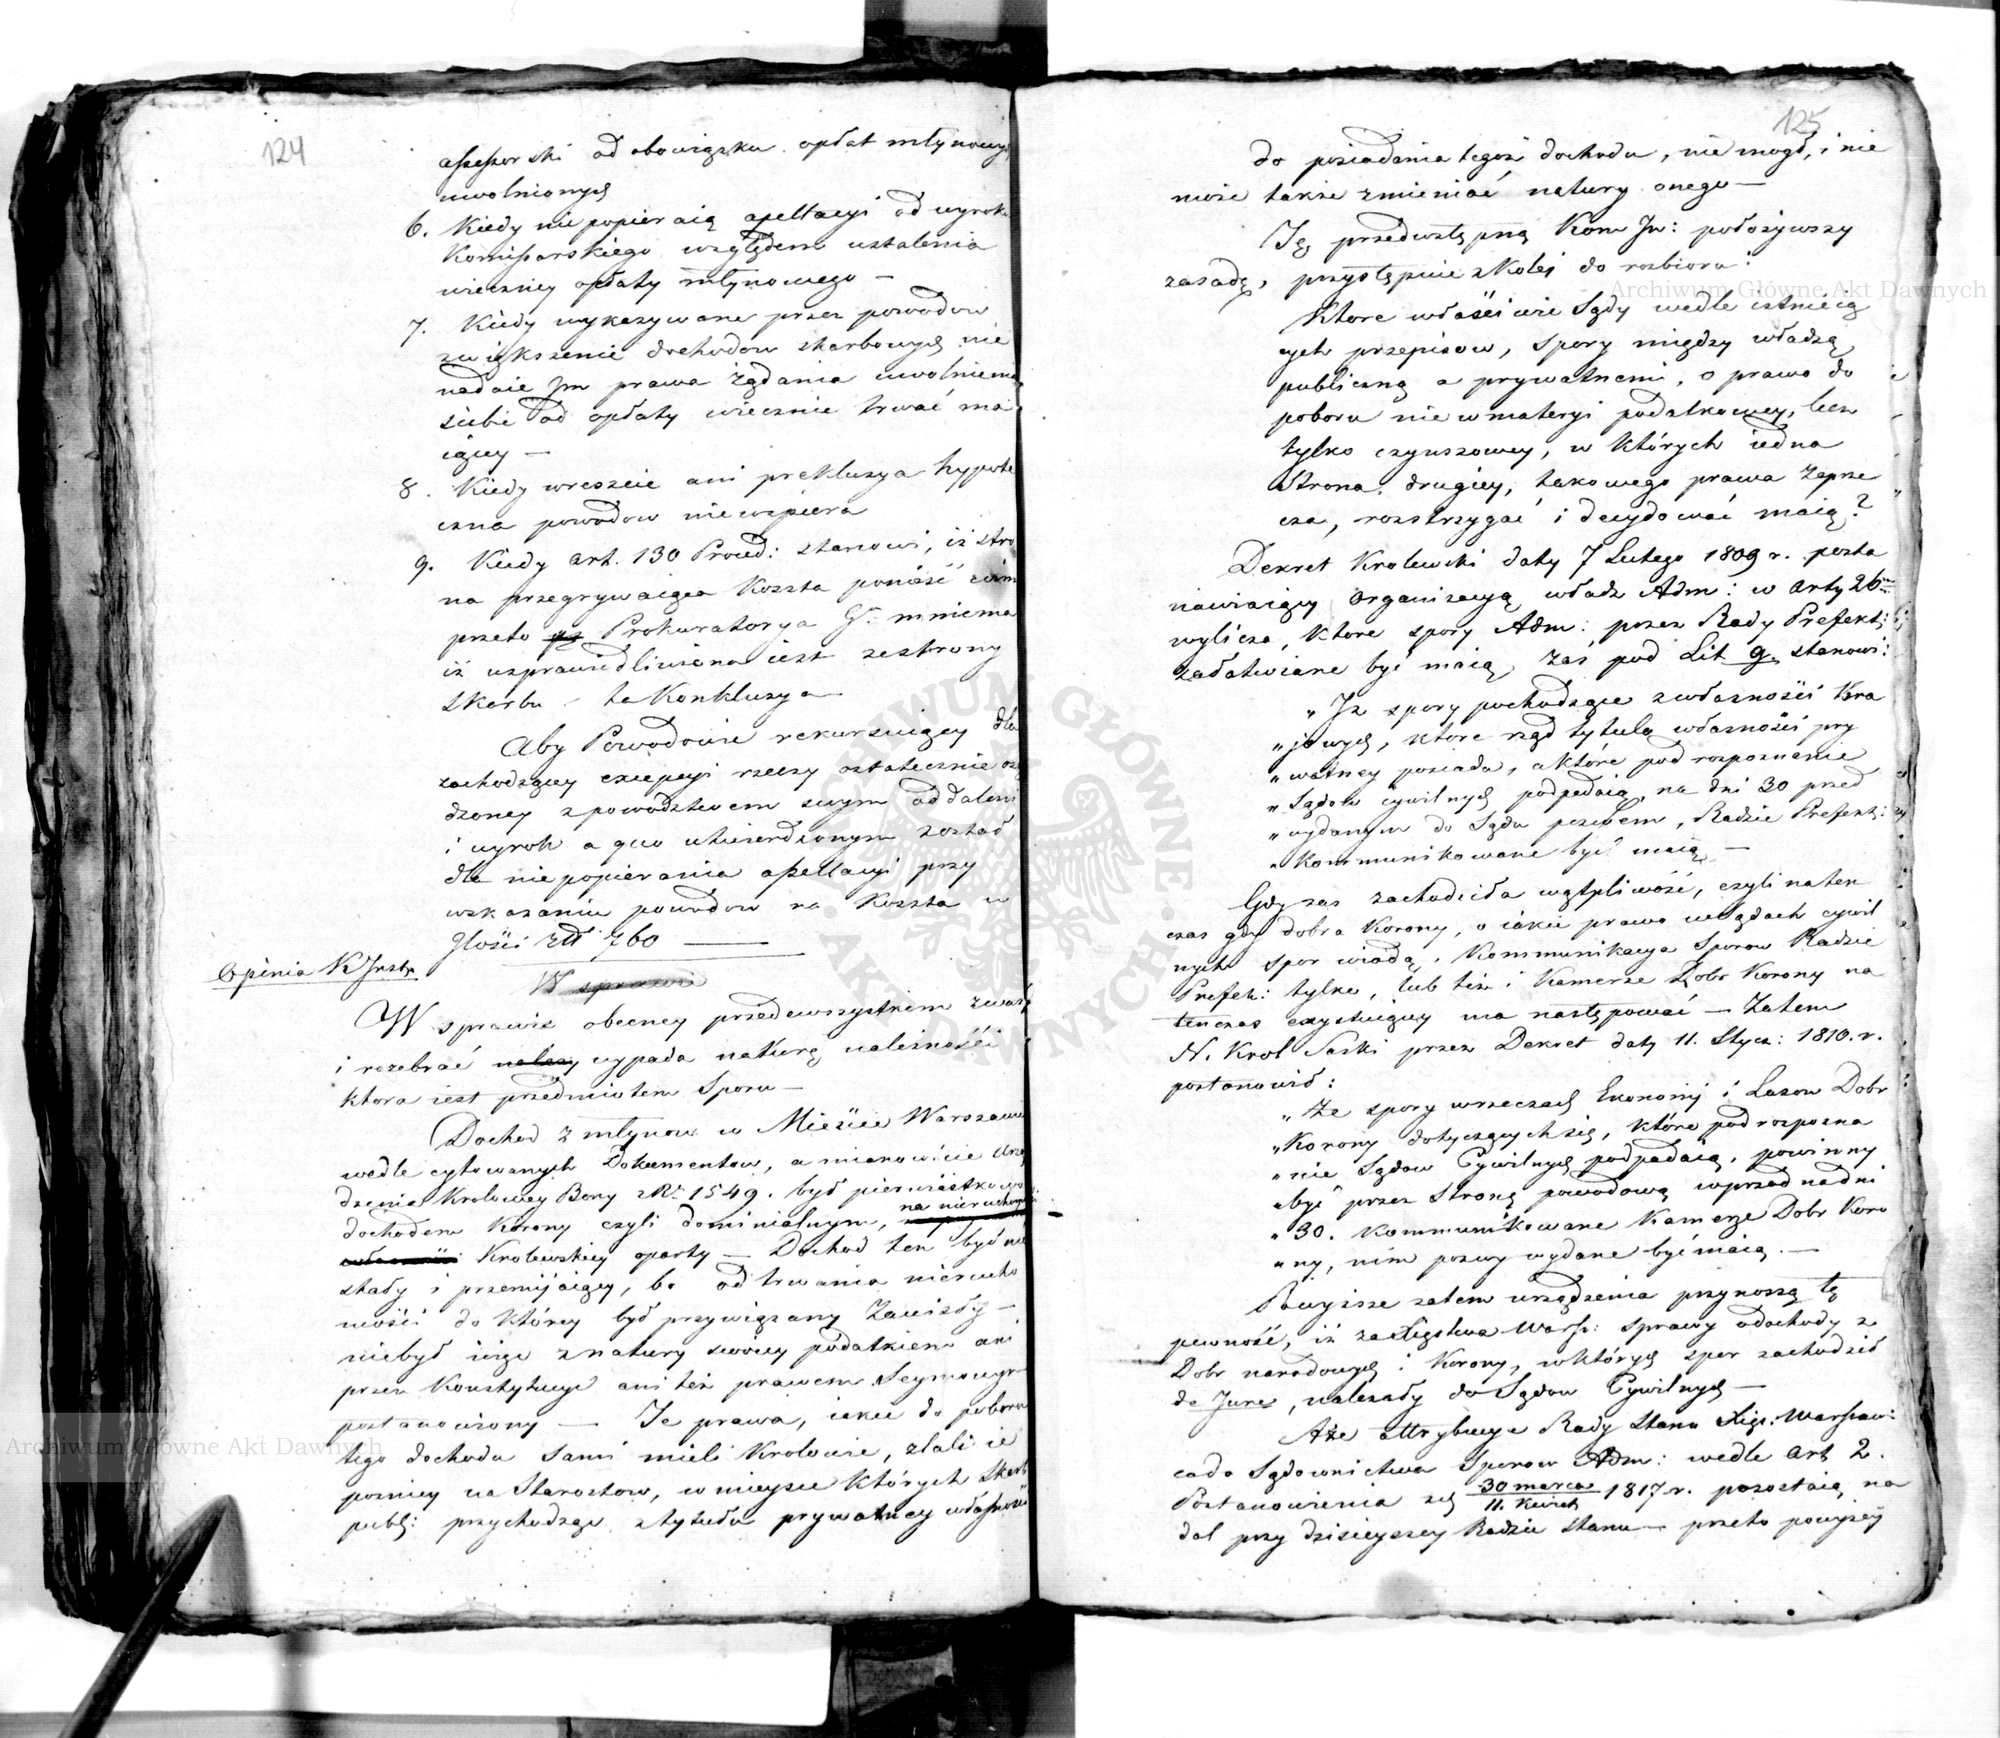 124
assessorski od obowiązku opłat młynowych
uwolnionych
6. Kiedy nie popieraią apellacyi od wyroku
Komissarskiego względem ustalenia
wieczney opłaty młynowego —
7. Kiedy wykazywane przez powodow
zwiększenie dochodow skarbowych nie
nadaie Im prawa żądania uwolnienia
siebie od opłaty wiecznie trwać ma
iącey —
8. Kiedy wreszcie ani prekluzya hypote
czna powodow niewspiera
9. Kiedy art. 130 Proced: stanowi, iż stro
na przegrywaiąca Koszta ponieść winna
przeto Prokuratorya G. mniema
iż usprawiedliwiona iest ze strony
Skarbu ta Konkluzya
Aby Powodowie rekursuiący dla
zachodzącey excepcyi rzeczy ostatecznie osą
dzoney z powodztwem swym oddaleni
i wyrok a quo utwierdzonym został
dla niepopierania apellacyi przy
wskazaniu powodow na Koszta w
Ilości zł 760 —
Opinia K Instr
W sprawie
W sprawie obecney przedewszystkiem zważyć
i rozebrać należy wypada naturę należności
ktora iest przedmiotem Sporu —
Dochod z młynow w Mieście Warszawie
wedle cytowanych Dokumentow, a mianowicie Urzą
dzenia Krolowey Bony z R. 1549. był pierwiastkowo
dochodem Korony czyli dominialnym, na nieruchomości
Krolewskiey oparty — Dochod ten był nie
stały i przemijaiący, bo od trwania nierucho
mości do którey był przywiązany Zawisły —
niebył więc z natury swoiey podatkiem ani
przez Konstytucye ani też prawem Seymowym
postanowiony — Te prawa, iakie do poboru
tego dochodu sami mieli Krolowie, zlali ie
pozniey na Starostow, w mieysce których Skarb
publ: przychodząc z tytułu prywatney własności
125
do posiadania tegoż dochodu, nie mogł, i nie
może także zmieniać natury onego —
Tę przedwstępną Kom In: położywszy
zasadę, przystępuie z Kolei do rozbioru:
Ktore właściwie Sądy wedle istnieią
cych przepisow, spory między władzą
publiczną a prywatnemi, o prawo do
poboru nie w materyi podatkowey, lecz
tylko czynszowey, w których iedna
Strona drugiey, takowego prawa zaprze
cza, rozstrzygać i decydować maią?
Dekret Krolewski daty 7 Lutego 1809 r. posta
nawiaiący organizacyą władz Adm: w arty 26m
wylicza, Ktore spory Adm: przez Rady Prefekt:
załatwiane być maią, zaś pod Lit g. stanowi:
„Iż spory pochodzące z własności Kra
„jowych, ktore rząd tytułą własności pry
„watney posiada, a które pod rozpoznanie
„Sądow cywilnych podpadaią, na dni 30 przed
„wydanym do Sądu pozwem, Radzie Prefekt:
„Kommunikowane być maią —
Gdy zas zachodziła wątpliwość, czyli naten
czas gdy dobra Korony, o iakie prawo w Sądach cywil
nych spor wiodą, Kommunikacya Sporow Radzie
Prefek: tylko, lub też i Kamerze Dobr Korony na
tenczas exystuiącey ma następować — Zatem
N. Krol Saski przez Dekret daty 11. Stycz: 1810. r.
postanowił:
„Że spory w rzeczach Ekonomij i Lasow Dobr
„Korony dotyczących się, które pod rozpozna
„nie Sądow Cywilnych podpadaią, powinny
„być przez Stronę powodową wprzod na dni
„30. Kommunikowane Kamerze Dobr Koro
„ny, nim pozwy wydane być maią. —
Powyższe zatem urządzenia przynoszą tę
pewność, iż za Xięstwa Warsz: sprawy o dochody z
Dobr narodowych i Korony, w których spor zachodził
de Jure, należały do Sądow Cywilnych —
A że attrybucye Rady Stanu Xięs: Warszaw:
co do Sądownictwa Sporow Adm: wedle art 2.
Postanowienia z d 30 marca / 11. Kwiet 1817 r. pozostaią na
dal przy dzisieyszey Radzie Stanu — przeto powyżey
Archiwum Główne Akt Dawnych
Archiwum Główne Akt Dawnych
ARCHIWUM GŁÓWNE · AKT DAWNYCH ·